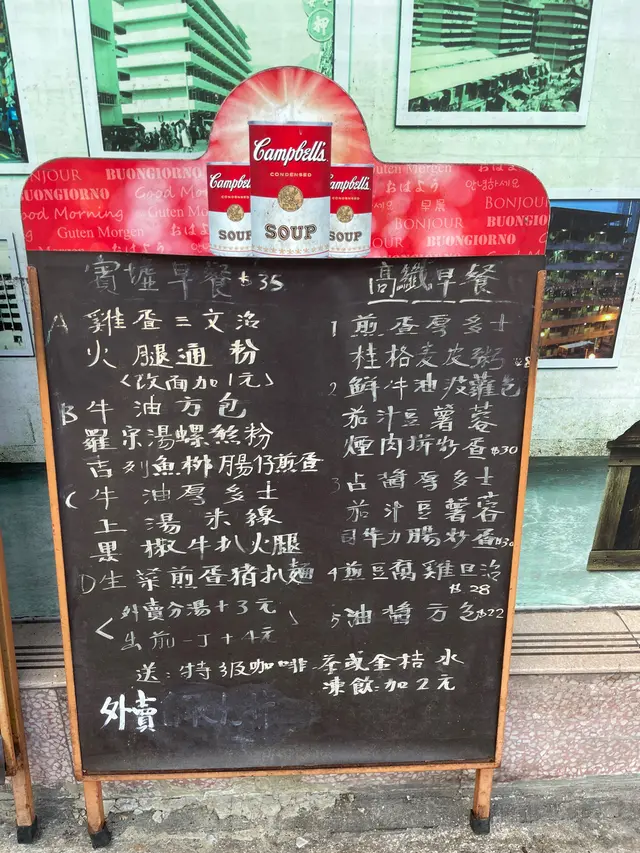 Campbell's
CONDENSED
SOUP
Campbell's
SOUP
Campbell's
SOUP
BONJOUR
BUONGIORNO
Good Morning
Guten Morgen
おはよう
Guten Morgen
おはよう
안녕하세요
早晨
BONJOUR
BUONGIORNO
早餐 $35
A 雞蛋三文治
火腿通粉
(改面加1元)
B 牛油方包
羅宋湯螺絲粉
吉列魚柳腸仔煎蛋
C 牛油厚多士
上湯米線
黑椒牛扒火腿
D 生菜煎蛋豬扒麵
外賣分湯+3元
出前一丁+4元
高纖早餐
1 煎蛋厚多士
桂格麦皮粥
2 鮮牛油菠蘿包
茄汁豆薯蓉
煙肉拼炒蛋 $30
3 占醬厚多士
茄汁豆薯蓉
腸炒蛋 $30
4 煎豆腐雞旦治
$28
5 油醬方包 $22
送:特级咖啡 茶或金桔水
凍飲加2元
外賣